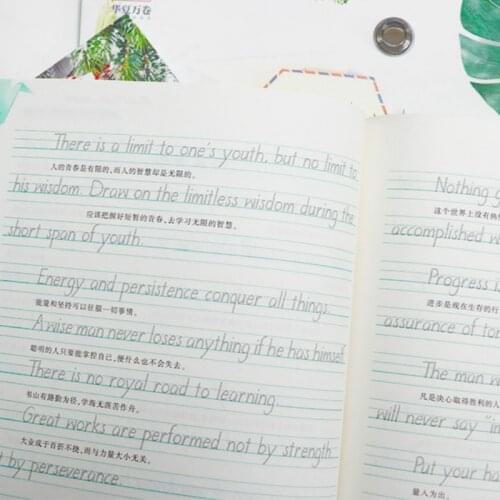 华夏万卷
There is a limit to one's youth, but no limit to
人的青春是有限的,而人的智慧却是无限的。
his wisdom. Draw on the limitless wisdom during the
应该把握好短暂的青春、去学习无限的智慧。
short span of youth.
Energy and persistence conquer all things.
能量和坚持可以征服一切事情。
A wise man never loses anything if he has himself.
聪明的人只要能掌控自己,便什么也不会失去。
There is no royal road to learning.
书山有路勤为径,学海无涯苦作舟。
Great works are performed not by strength
大业成于百折不挠,而与力量大小无关。
t by perseverance.
Nothing
这个世界上没有
accomplished
Progress is
进步是现在生存的行
assurance of to
The man
凡是决心取得胜利的人
will never say "im
Put your ha
量入为出。